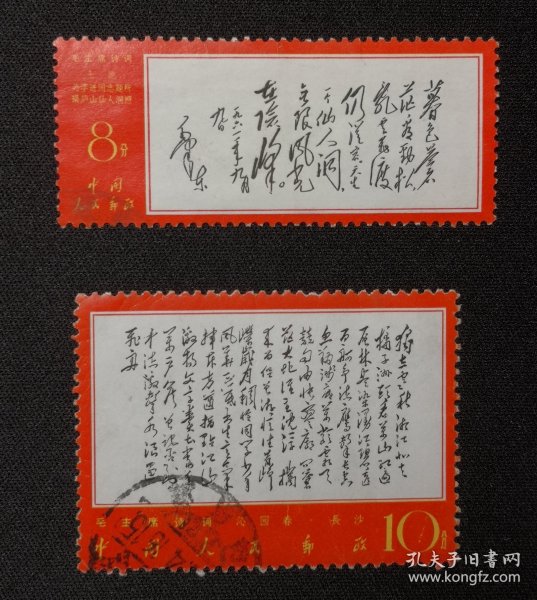 毛主席诗词
七绝
为李进同志题所
摄庐山仙人洞照
8分
中国
人民邮政
暮色蒼
茫看劲松
乱云飞渡
仍從容天生
一个仙人洞
无限风光
在險峰。
一九六一年九月
九日
毛泽东
独立寒秋湘江北去
橘子洲头看万山红遍
层林尽染漫江碧透
百舸争流鹰击长空
鱼翔浅底万类霜天
竞自由怅寥廓问苍
茫大地谁主沉浮携
来百侣曾游忆往昔峥
嵘岁月稠恰同学少年
风华正茂书生意气
挥斥方遒指点江山
激扬文字粪土当年
万户侯曾记否到
中流击水浪遏
飞舟
毛主席诗词 沁园春·長沙
中国人民邮政 10分
孔夫子旧书网
www.kongfz.com